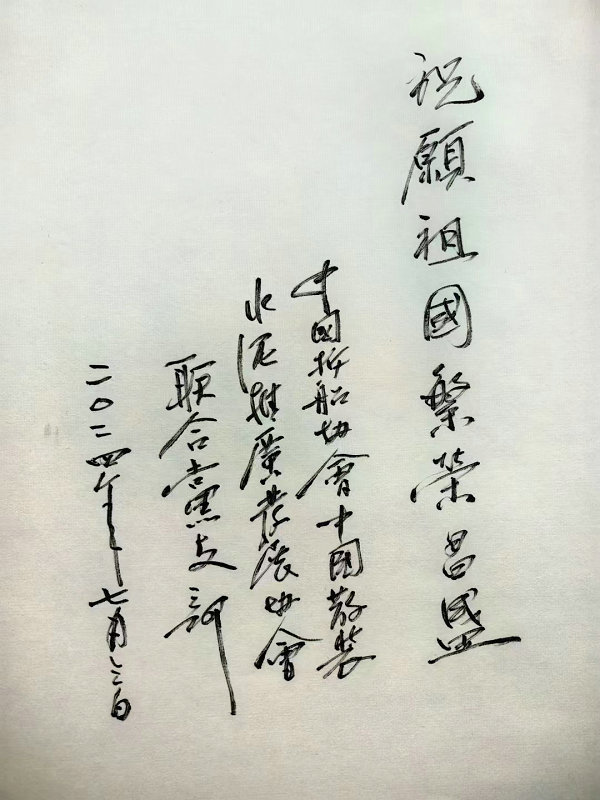 祝願祖國繁榮昌盛
中國拆船协會中國散裝
水泥推廣發展协會
联合黨支部
二〇二四年七月三日